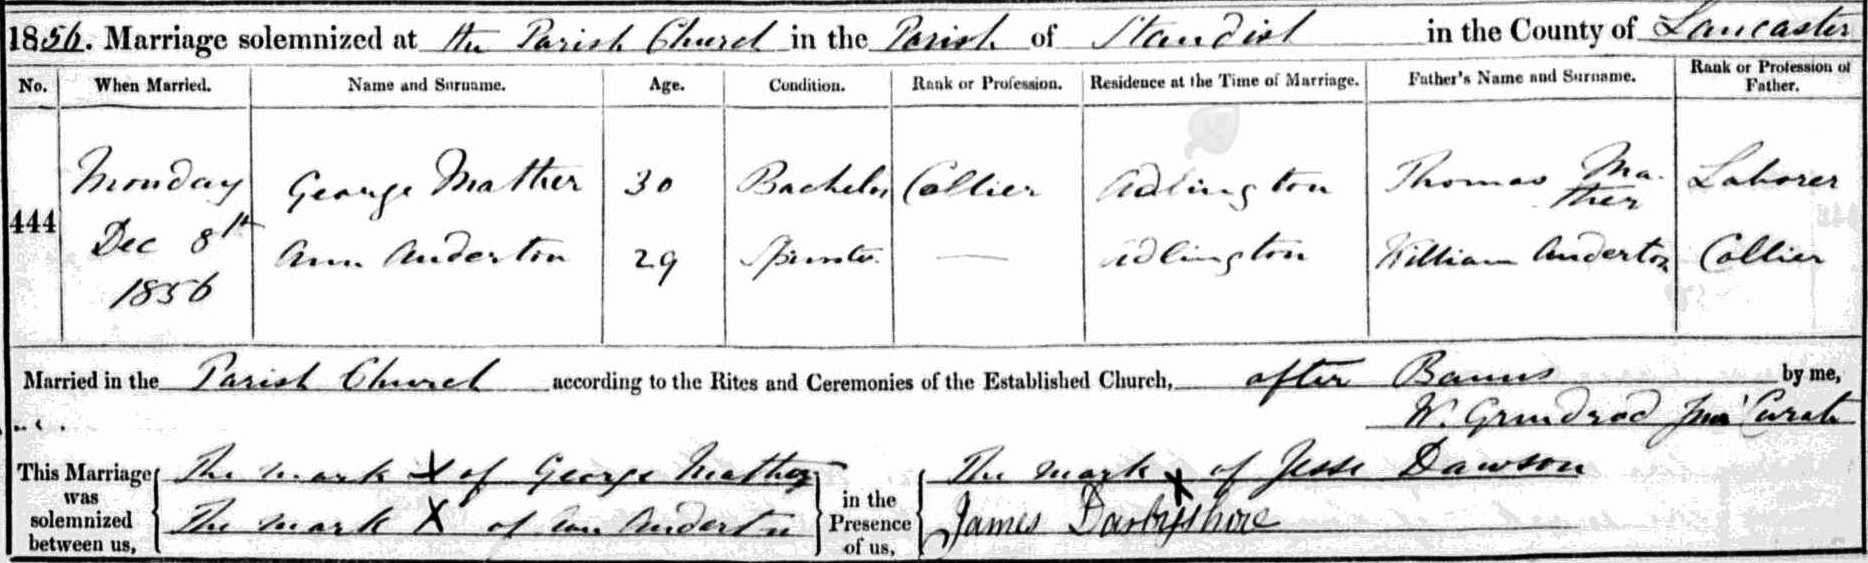 1856. Marriage solemnized at the Parish Church in the Parish of Standish in the County of Lancaster
No. When Married. Name and Surname. Age. Condition. Rank or Profession. Residence at the Time of Marriage. Father's Name and Surname. Rank or Profession of Father.
444 Monday Dec 8th 1856
George Mather 30 Bachelor Collier Adlington Thomas Mather Laborer
Ann Anderton 29 Spinster — Adlington William Anderton Collier
Married in the Parish Church according to the Rites and Ceremonies of the Established Church, after Banns by me,
W. Grundrod Curate
This Marriage was solemnized between us,
The mark X of George Mather
The mark X of Ann Anderton
in the Presence of us,
The mark X of Jesse Dawson
James Darbyshire